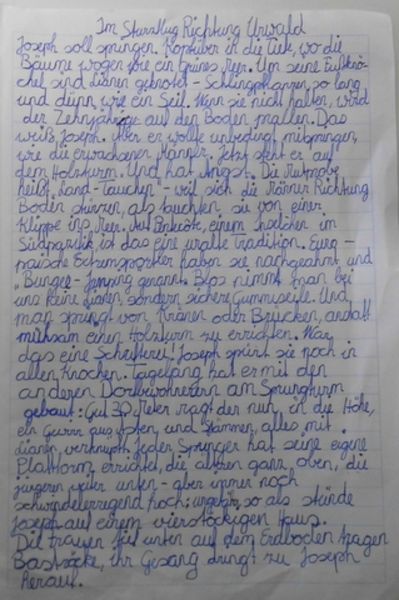 Im Sturzflug Richtung Urwald
Joseph soll springen. Kopfüber in die Tiefe, wo die
Bäume wogen wie ein Grünes Meer. Um seine Fußknö-
chel sind Lianen geknotet - Schlingpflanzen, so lang
und dünn, wie ein Seil. Wenn sie nicht halten, wird
der Zehnjährige auf den Boden prallen. Das
weiß Joseph. Aber er wollte unbedingt mitspringen,
wie die erwachsenen Männer. Jetzt steht er auf
dem Holzturm. Und hat Angst. Die Mutprobe
heißt „Land-Tauchen" - weil sich die Männer Richtung
Boden stürzen, als tauchten sie von einer
Klippe ins Meer. Auf Pentecôte, einem Inselchen im
Südpazifik ist das eine uralte Tradition. Euro-
päische Extremsportler haben sie nachgeahmt und
„Bungee-Jumping genannt. Blos nimmt man bei
uns keine Lianen, sondern sichere Gummiseile. Und
man springt von Kränen oder Brücken, anstatt
mühsam einen Holzturm zu errichten. War
das eine Schufterei! Joseph spürt sie noch in
allen Knochen. Tagelang hat er mit den
anderen Dorfbewohnern am Sprungturm
gebaut: Gut 30 Meter ragt der nun in die Höhe,
ein Gewirr aus Ästen und Stämmen, alles mit
Lianen verknüpft. Jeder Springer hat seine eigene
Plattform errichtet, die älteren ganz oben, die
jüngeren weiter unten - aber immer noch
schwindelerregend hoch: ungefähr so als stünde
Joseph auf einem vierstöckigen Haus.
Die Frauen tief unten auf dem Erdboden tragen
Baströcke, ihr Gesang dringt zu Joseph
herauf.